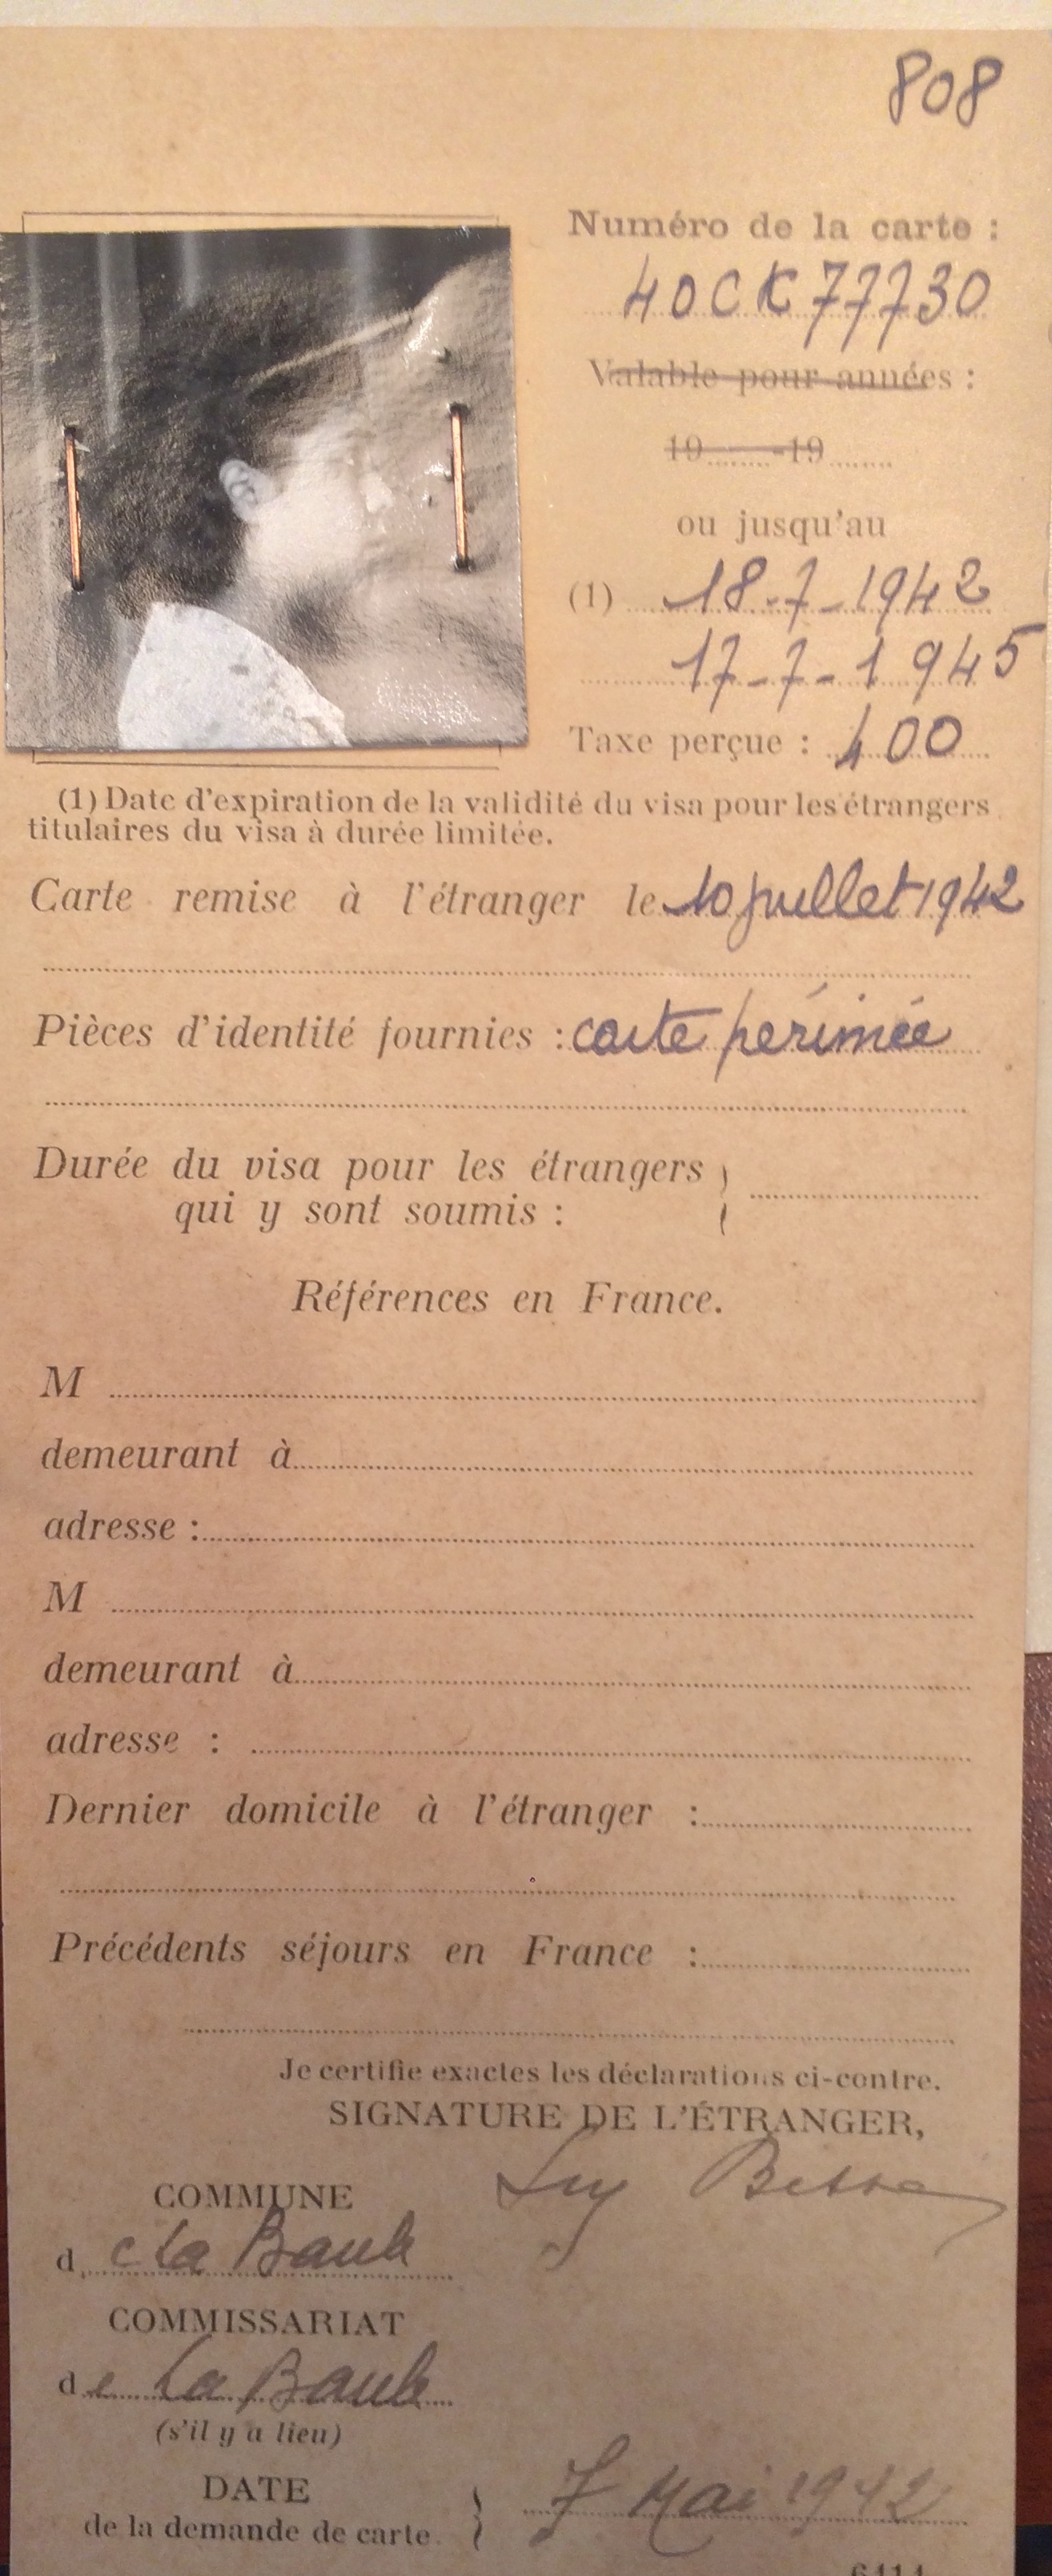 808
Numéro de la carte :
40CK77730
Valable pour années :
19 -19
ou jusqu'au
(1) 18-7-1942
17-7-1945
Taxe perçue : 400
(1) Date d'expiration de la validité du visa pour les étrangers
titulaires du visa à durée limitée.
Carte remise à l'étranger le 10 juillet 1942
Pièces d'identité fournies : carte périmée
Durée du visa pour les étrangers
qui y sont soumis :
Références en France.
M
demeurant à
adresse :
M
demeurant à
adresse :
Dernier domicile à l'étranger :
Précédents séjours en France :
Je certifie exactes les déclarations ci-contre.
SIGNATURE DE L'ÉTRANGER,
COMMUNE
d La Baule
COMMISSARIAT
de La Baule
(s'il y a lieu)
DATE
de la demande de carte 7 Mai 1942